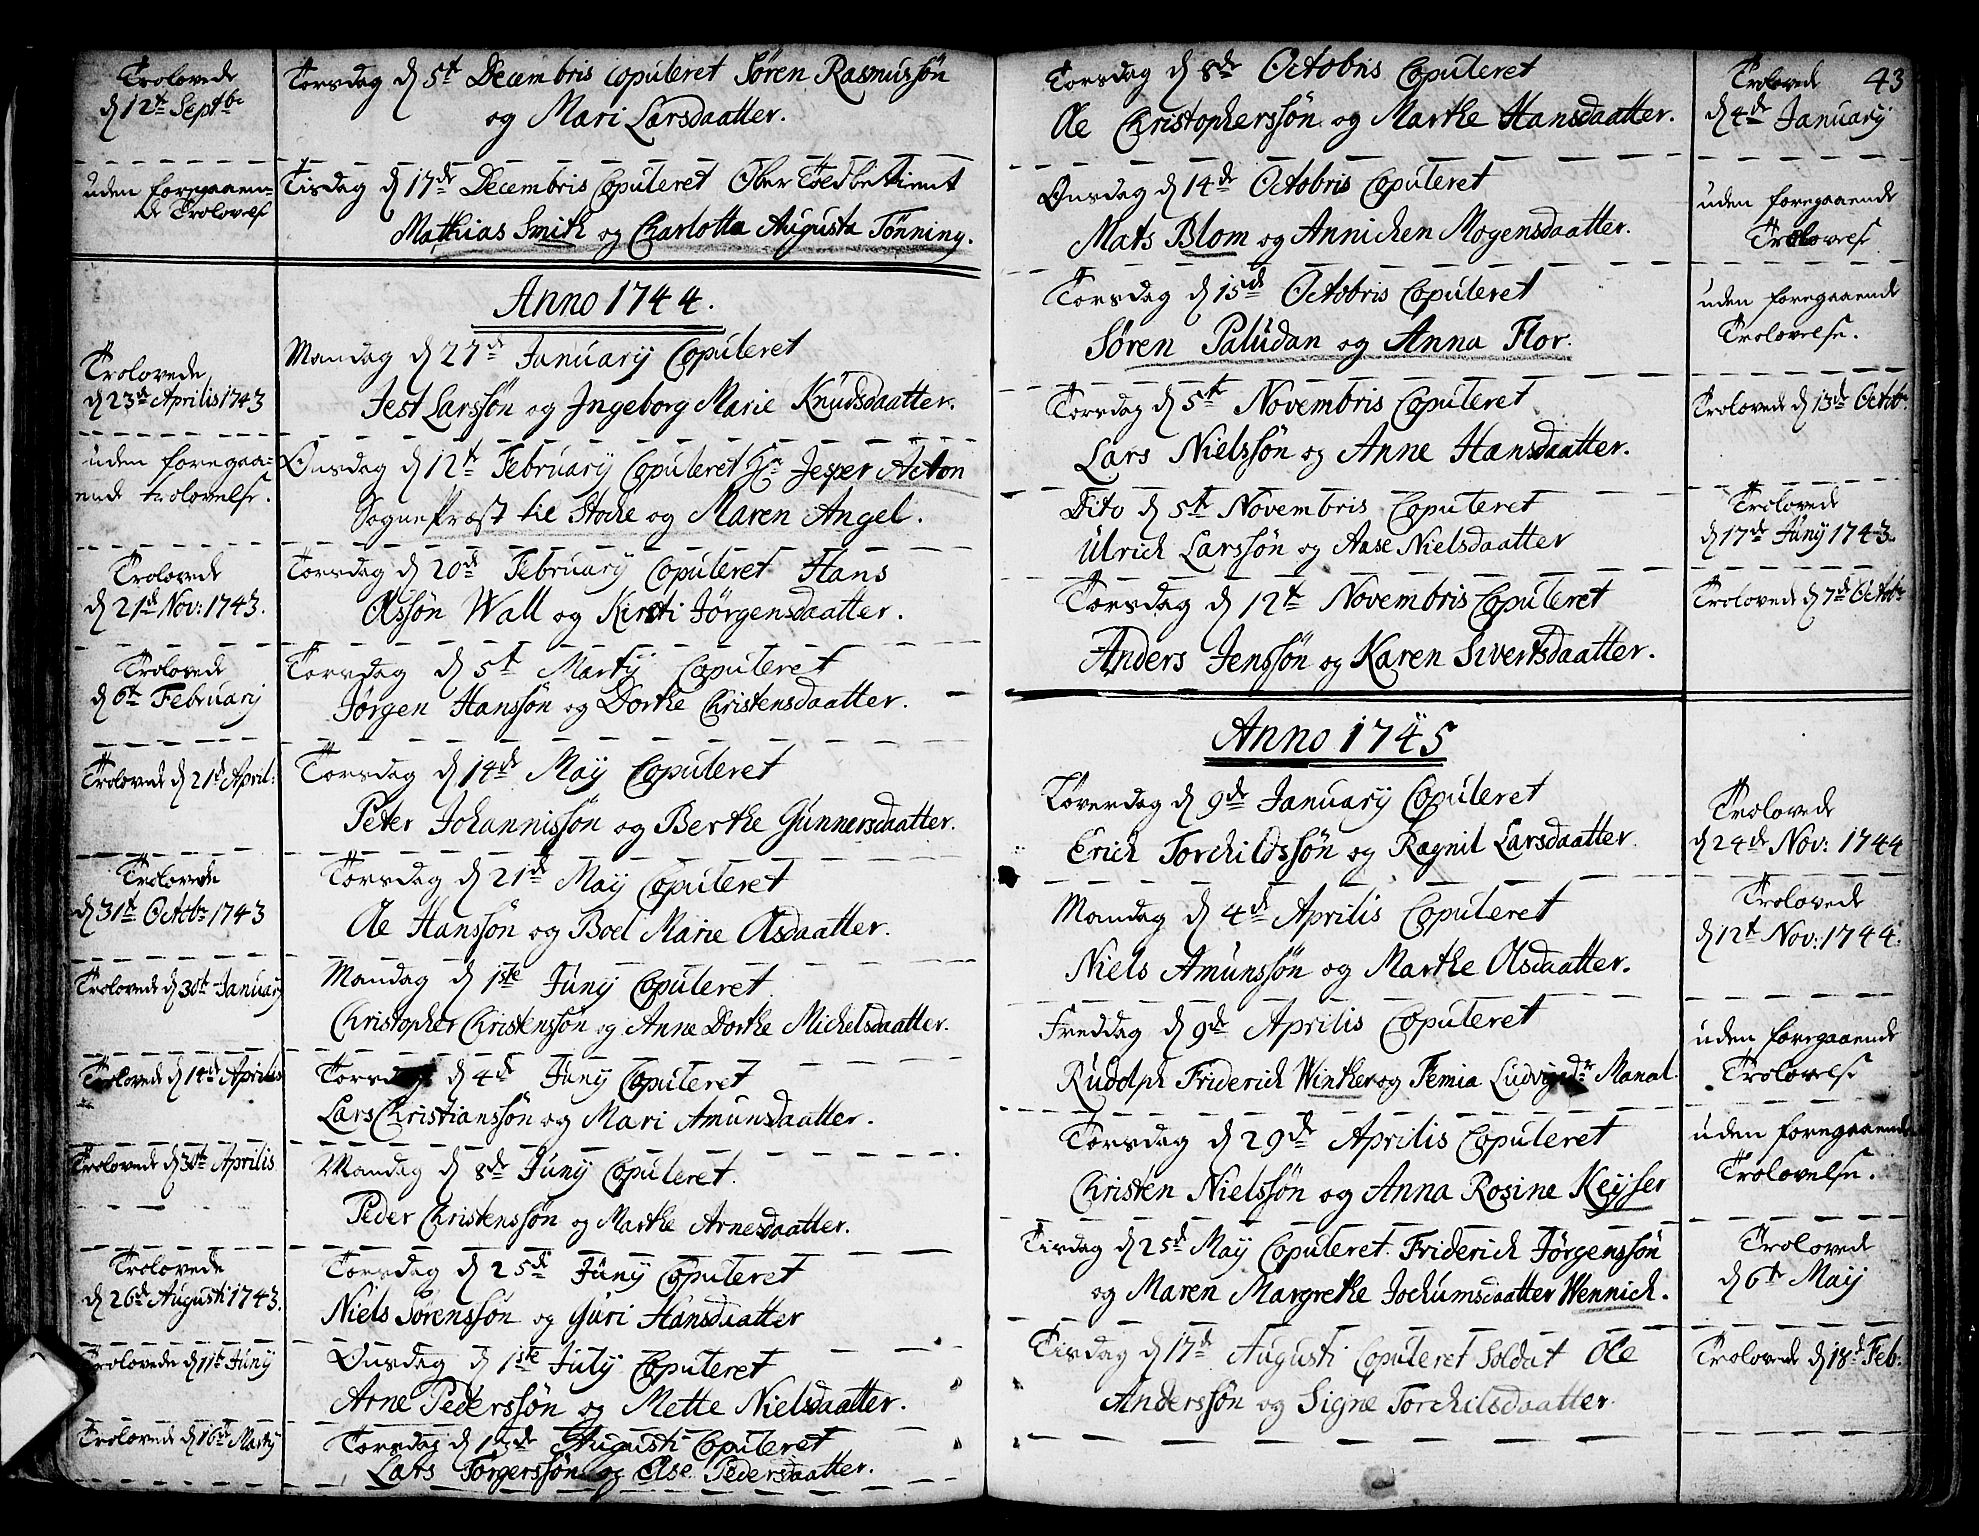 Trolovede
d 12te Septbr
Torsdag d 5te Decembris Copuleret Sören Rasmussön
og Mari Larsdaatter.
uden foregaaen-
de Trolovelse
Tisdag d 17de Decembris Copuleret Ober Toldbetient
Mathias Smith og Charlotta Augusta Tönning.
Anno 1744.
Trolovede
d 23de Aprilis 1743
Mandag d 27de January Copuleret
Jest Larssön og Ingeborg Marie Knudsdaatter.
uden foregaa-
ende trolovelse.
Onsdag d 12te February Copuleret Hr Jesper Acton
Sognepræst til Stocke og Maren Angel.
Trolovede
d 21de Nov: 1743.
Torsdag d 20de February Copuleret Hans
Olssön Wall og Kirsti Jörgensdaatter.
Trolovede
d 6te February
Torsdag d 5te Martij Copuleret
Jörgen Hanssön og Dorthe Christensdaatter.
Trolovede d 21de April:
Torsdag d 14de May Copuleret
Peter Johannissön og Berthe Gunnersdaatter.
Trolovede
d 31te Octbr 1743
Torsdag d 21de May Copuleret
Ole Hanssön og Boel Marie Olsdaatter.
Trolovede d 30te January
Mandag d 1ste Juny Copuleret
Christopher Christenssön og Anne Dorthe Michelsdaatter.
Trolovede d 14de Aprilis
Torsdag d 4de Juny Copuleret
Lars Christianssön og Mari Amunsdaatter.
Trolovede d 30te Aprilis
Mandag d 8de Juny Copuleret.
Peder Christenssön og Marthe Arnesdaatter.
Trolovede
d 26de Augusti 1743.
Torsdag d 25de Juny Copuleret
Niels Sörenssön og Guri Hansdaatter
Trolovede d 11te Juny
Onsdag d 1ste July Copuleret
Arne Pederssön og Mette Nielsdaatter.
Trolovede d 16te Martij
Torsdag d Augusti Copuleret
Lars Törgerssön og Else Pedersdaatter.
43
Torsdag d 8de Octobris Copuleret
Ole Christopherssön og Marthe Hansdaatter.
Trolovede
d 4de January
Onsdag d 14de Octobris Copuleret
Mats Blom og Annichen Mogensdaatter.
uden foregaaende
Trolovelse
Torsdag d 15de Octobris Copuleret
Sören Paludan og Anna Flor.
uden foregaaende
Trolovelse.
Torsdag d 5te Novembris Copuleret
Lars Nielssön og Anne Hansdaatter.
Trolovede d 13de Octobr.
Dito d 5te Novembris Copuleret
Ulrich Larssön og Aase Nielsdaatter
Trolovede
d 17de Juny 1743.
Torsdag d 12te Novembris Copuleret
Anders Jenssön og Karen Sivertsdaatter.
Trolovede d 7de Octobr
Anno 1745
Löverdag d 9de January Copuleret
Erich Torchildssön og Ragnil Larsdaatter
Trolovede
d 24de Nov: 1744
Mandag d 4de Aprilis Copuleret
Niels Amunssön og Marthe Olsdaatter.
Trolovede
d 12te Nov: 1744.
Freddag d 9de Aprilis Copuleret
Rudolph Friderich Winther og Femia Ludvigsdr Manal.
uden foregaaende
Trolovelse
Torsdag d 29de Aprilis Copuleret
Christen Nielssön og Anna Rosine Keyser
uden foregaaende
Trolovelse.
Tisdag d 25de May Copuleret Friderich Jörgenssön
og Maren Margrethe Jochumsdaatter Wennich.
Trolovede
d 6te May
Tisdag d 17de Augusti Copuleret Soldat Ole
Anderssön og Signe Torchilsdaatter.
Trolovede d 18de Feb: